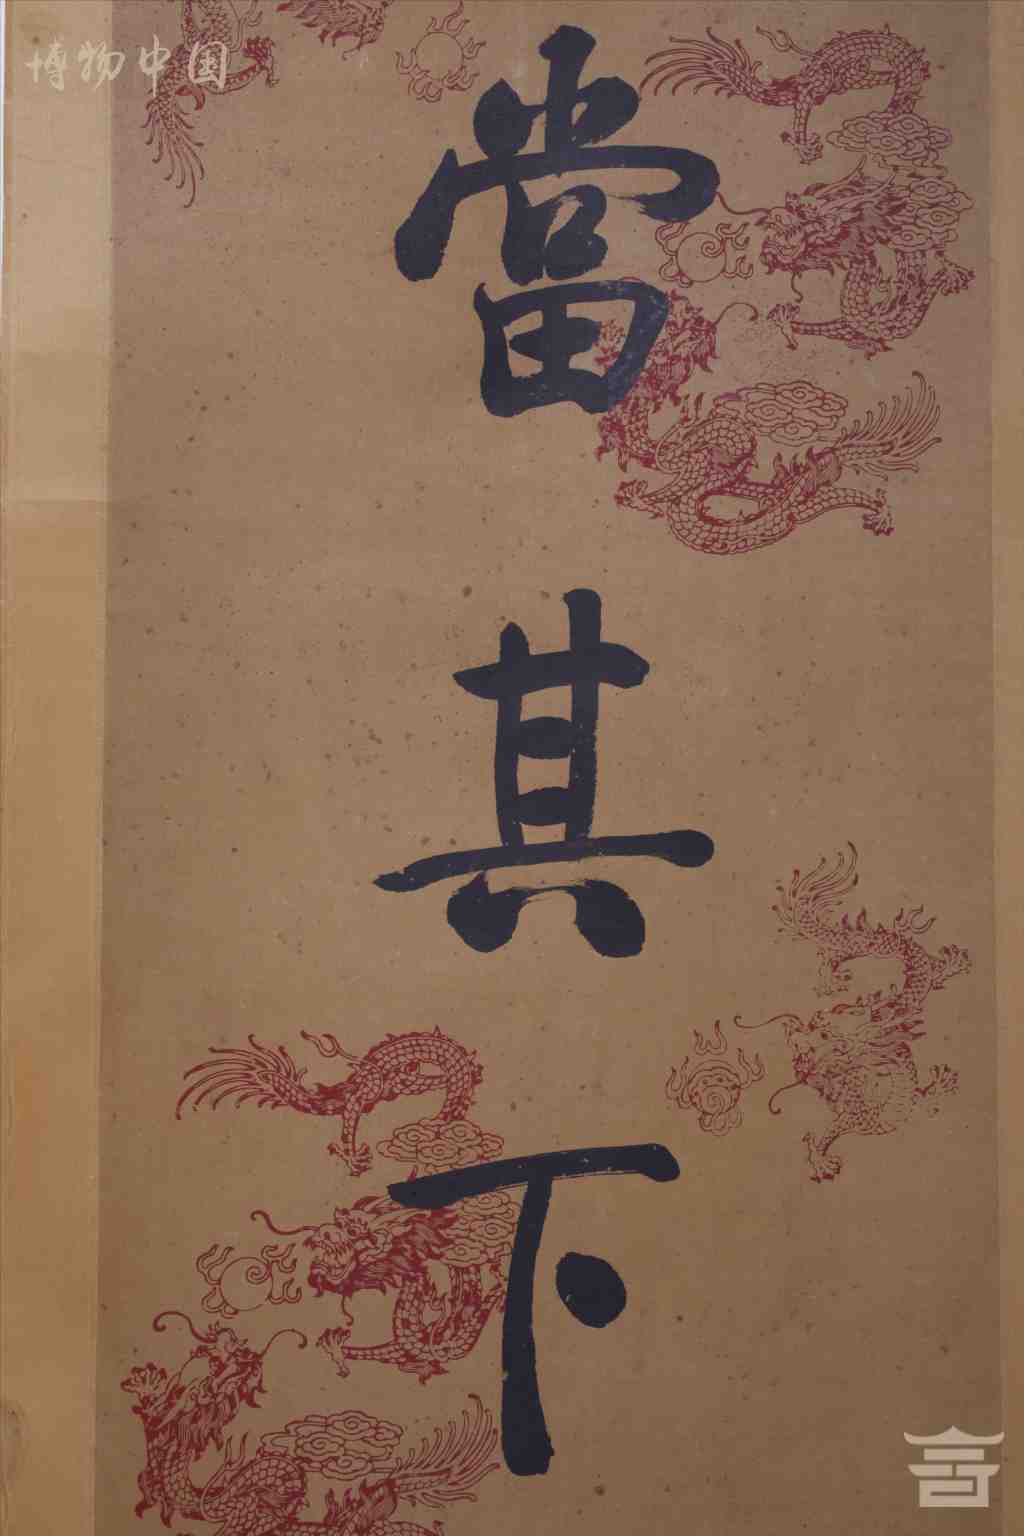 博物中国
當其下